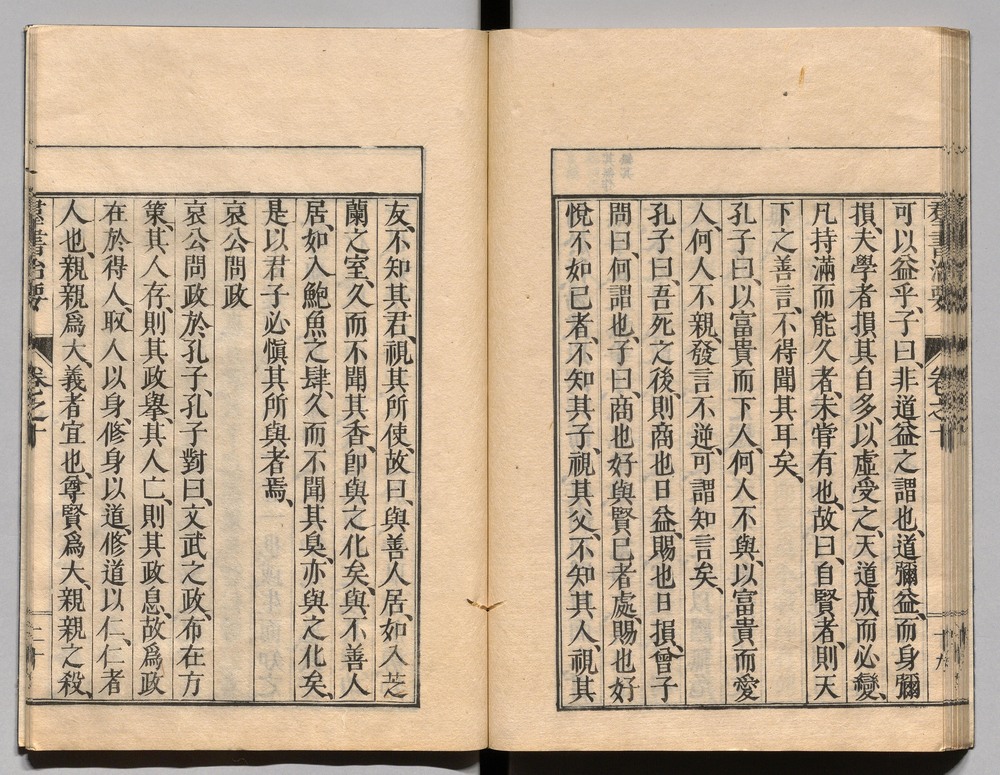 可以益乎、子曰、非道益之謂也、道彌益、而身彌
損、夫學者損其自多、以虛受之、天道成而必變、
凡持滿而能久者、未嘗有也、故曰、自賢者、則天
下之善言、不得聞其耳矣、
孔子曰、以富貴而下人、何人不與、以富貴而愛
人、何人不親、發言不逆、可謂知言矣、
孔子曰、吾死之後、則商也日益、賜也日損、曾子
問曰、何謂也、子曰、商也好與賢己者處、賜也好
悅不如己者、不知其子、視其父、不知其人、視其
羣書治要
卷之十
十九
友、不知其君、視其所使、故曰、與善人居、如入芝
蘭之室、久而不聞其香、卽與之化矣、與不善人
居、如入鮑魚之肆、久而不聞其臭、亦與之化矣、
是以君子必愼其所與者焉、
哀公問政
哀公問政於孔子、孔子對曰、文武之政、布在方
策、其人存、則其政舉、其人亡、則其政息、故爲政
在於得人、取人以身、修身以道、修道以仁、仁者
人也、親親爲大、義者宜也、尊賢爲大、親親之殺、
羣書治要
卷之十
二十